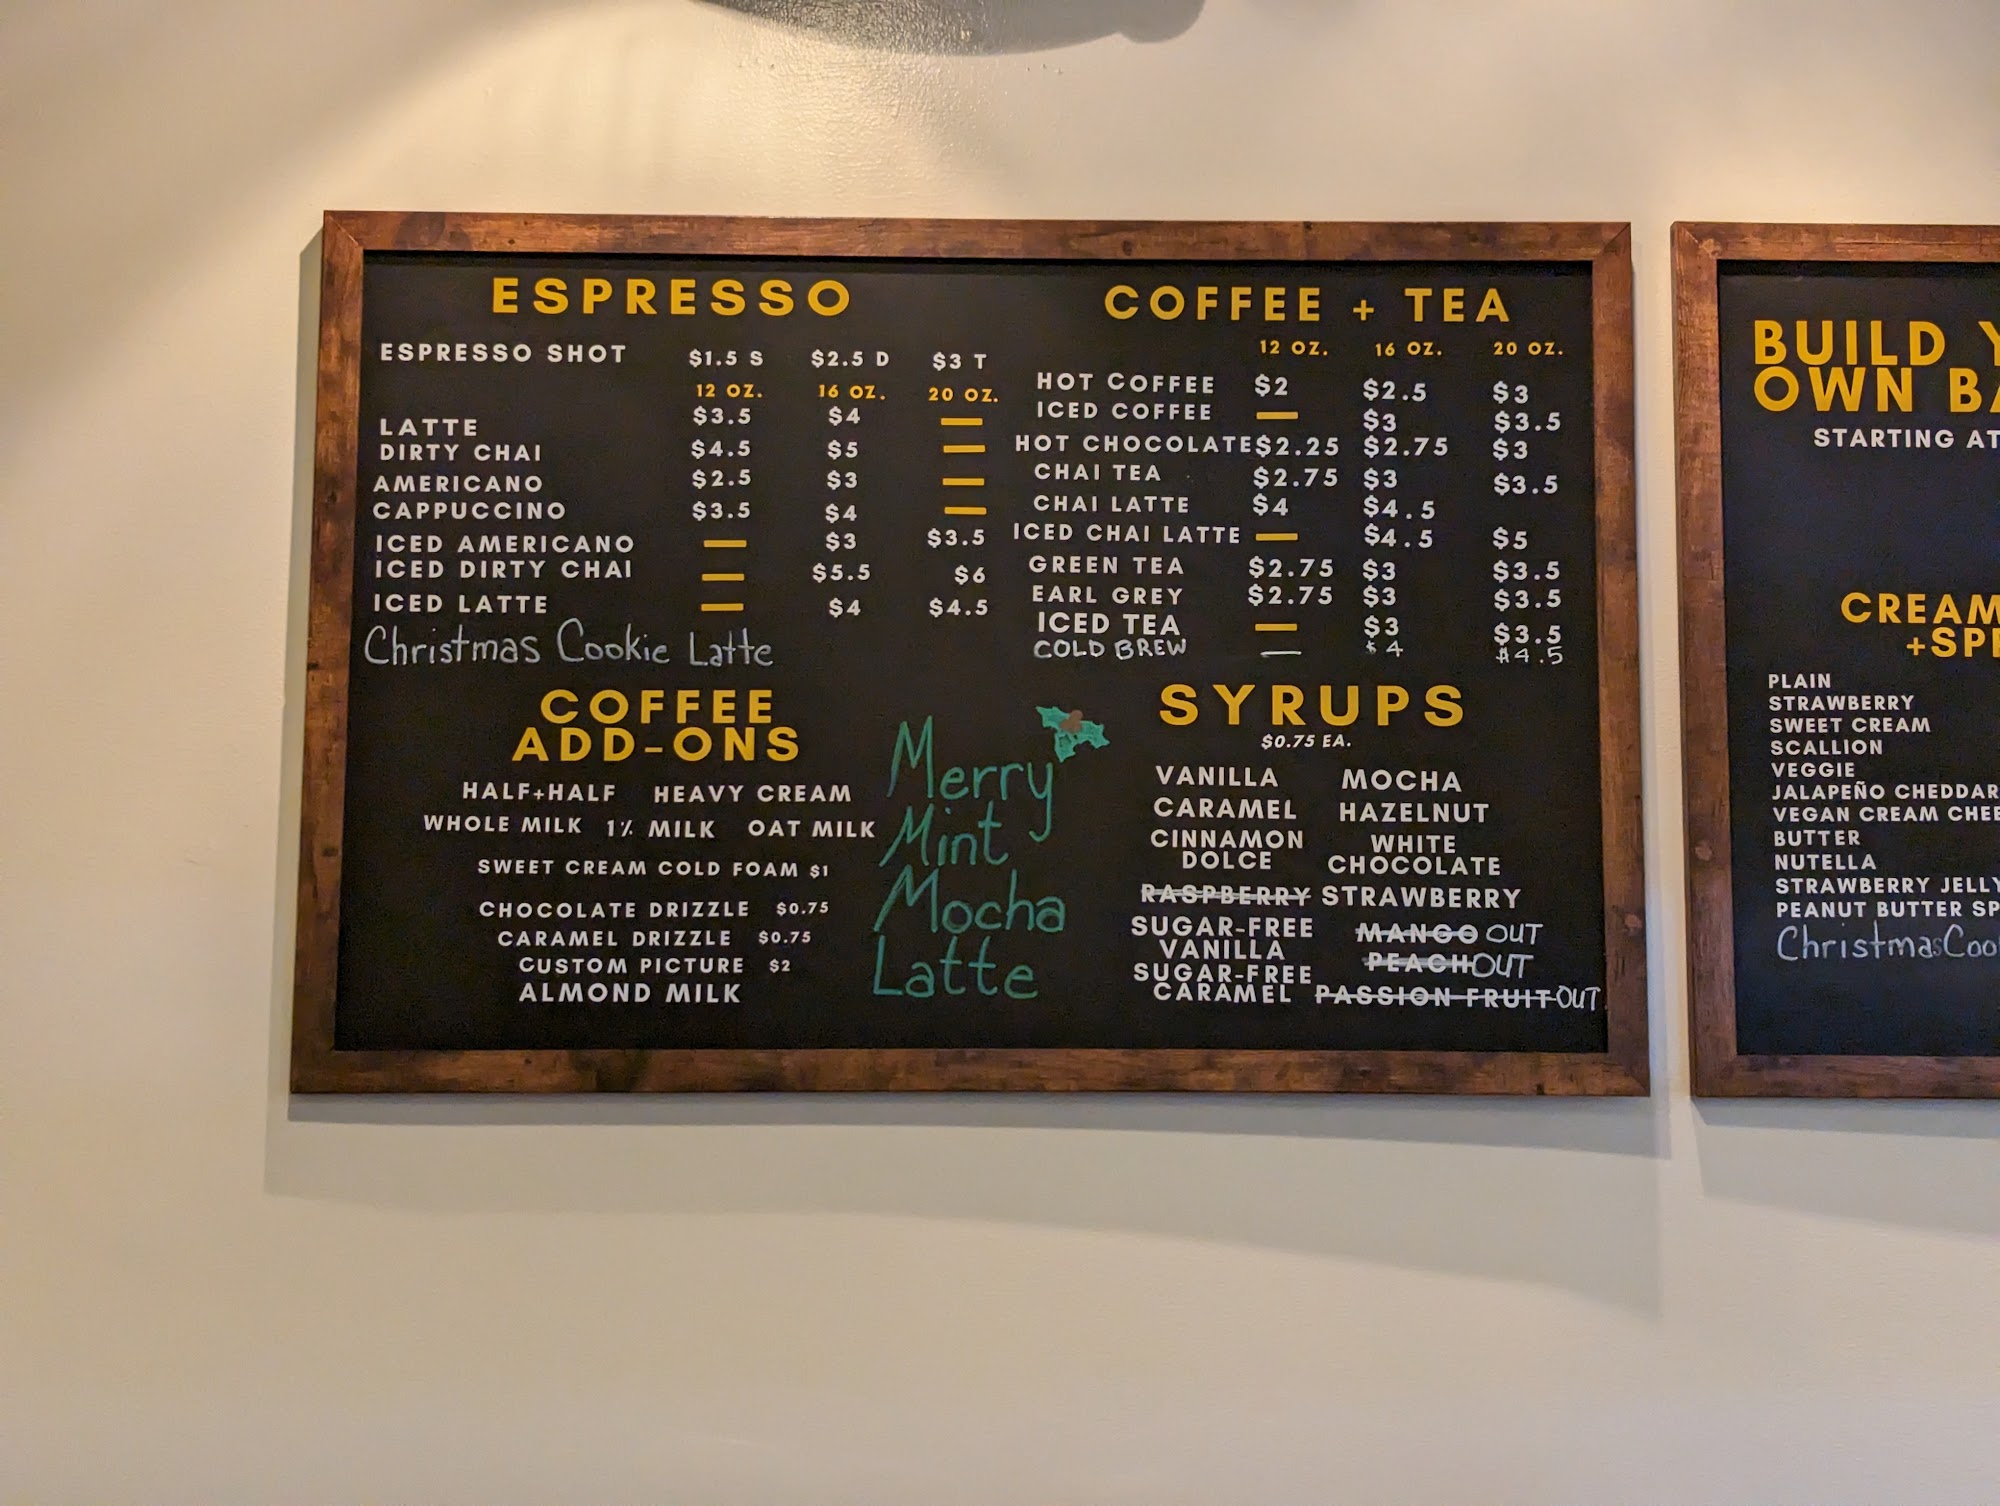 ESPRESSO
ESPRESSO SHOT $1.5 S $2.5 D $3 T
12 OZ. 16 OZ. 20 OZ.
LATTE $3.5 $4 —
DIRTY CHAI $4.5 $5 —
AMERICANO $2.5 $3 —
CAPPUCCINO $3.5 $4 —
ICED AMERICANO — $3 $3.5
ICED DIRTY CHAI — $5.5 $6
ICED LATTE — $4 $4.5
Christmas Cookie Latte
COFFEE + TEA
12 OZ. 16 OZ. 20 OZ.
HOT COFFEE $2 $2.5 $3
ICED COFFEE — $3 $3.5
HOT CHOCOLATE $2.25 $2.75 $3
CHAI TEA $2.75 $3 $3.5
CHAI LATTE $4 $4.5
ICED CHAI LATTE — $4.5 $5
GREEN TEA $2.75 $3 $3.5
EARL GREY $2.75 $3 $3.5
ICED TEA — $3 $3.5
COLD BREW — $4 $4.5
COFFEE
ADD-ONS
HALF+HALF HEAVY CREAM
WHOLE MILK 1% MILK OAT MILK
SWEET CREAM COLD FOAM $1
CHOCOLATE DRIZZLE $0.75
CARAMEL DRIZZLE $0.75
CUSTOM PICTURE $2
ALMOND MILK
Merry
Mint
Mocha
Latte
SYRUPS
$0.75 EA.
VANILLA MOCHA
CARAMEL HAZELNUT
CINNAMON WHITE
DOLCE CHOCOLATE
RASPBERRY STRAWBERRY
SUGAR-FREE MANGO OUT
VANILLA PEACH OUT
SUGAR-FREE
CARAMEL PASSION FRUIT OUT
BUILD Y
OWN BA
STARTING AT
CREAM
+SP
PLAIN
STRAWBERRY
SWEET CREAM
SCALLION
VEGGIE
JALAPEÑO CHEDDAR
VEGAN CREAM CHEE
BUTTER
NUTELLA
STRAWBERRY JELLY
PEANUT BUTTER SP
Christmas Coo